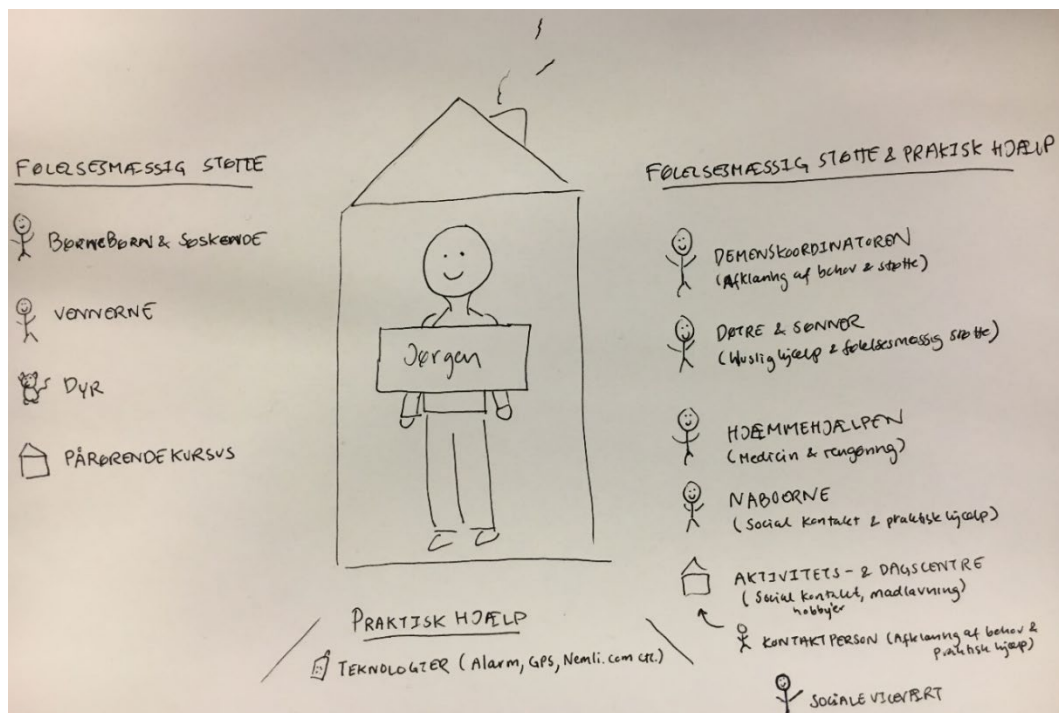 FØLELSESMÆSSIG STØTTE
BØRNEBØRN & SØSKENDE
VENNERNE
DYR
PÅRØRENDEKURSUS
Jørgen
PRAKTISK HJÆLP
TEKNOLOGIER (Alarm, GPS, Nemli.com etc.)
FØLELSESMÆSSIG STØTTE & PRAKISK HJÆLP
DEMENSKOORDINATOREN
(Afklaring af behov & støtte)
DØTRE & SØNNER
(Huslig hjælp & følelsesmæssig støtte)
HJÆMMEHJÆLPEN
(Medicin & rengøring)
NABOERNE
(Social kontakt & praktisk hjælp)
AKTIVITETS- & DAGSCENTRE
(Social kontakt, madlavning)
hobbyer
KONTAKTPERSON (Afklaring af behov &
praktisk hjælp)
SOCIALE VICEVÆRT